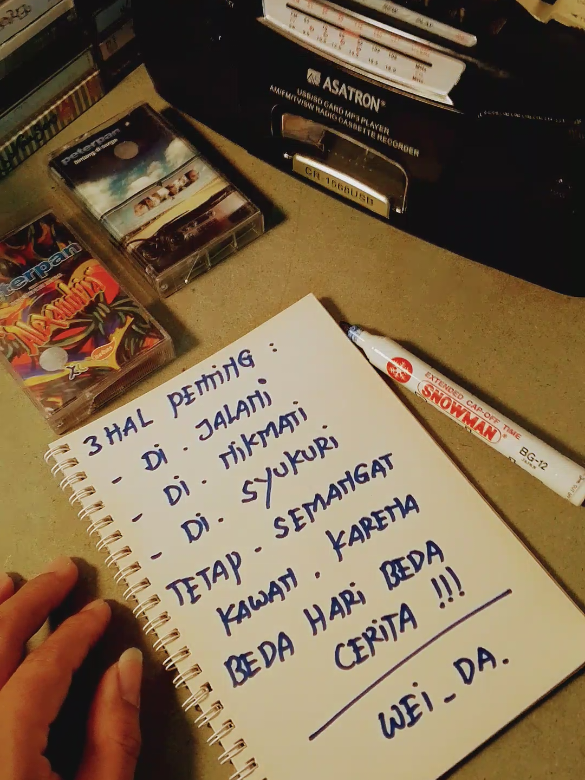 ASATRON
USB/SD CARD MP3 PLAYER
AM/FM/TV/SW RADIO CASSETTE RECORDER
CR-1568USB
peterpan
bintang di surga
terpan
Alexandria
3 HAL PENTING :
- Di . JALANi
- Di . NiKMATi
- Di . SYUKURi
TETAP . SEMANGAT
KAWAN . KARENA
BEDA HARi BEDA
CERiTA !!!
WEi_DA.
EXTENDED CAP-OFF TIME
SNOWMAN
BG-12